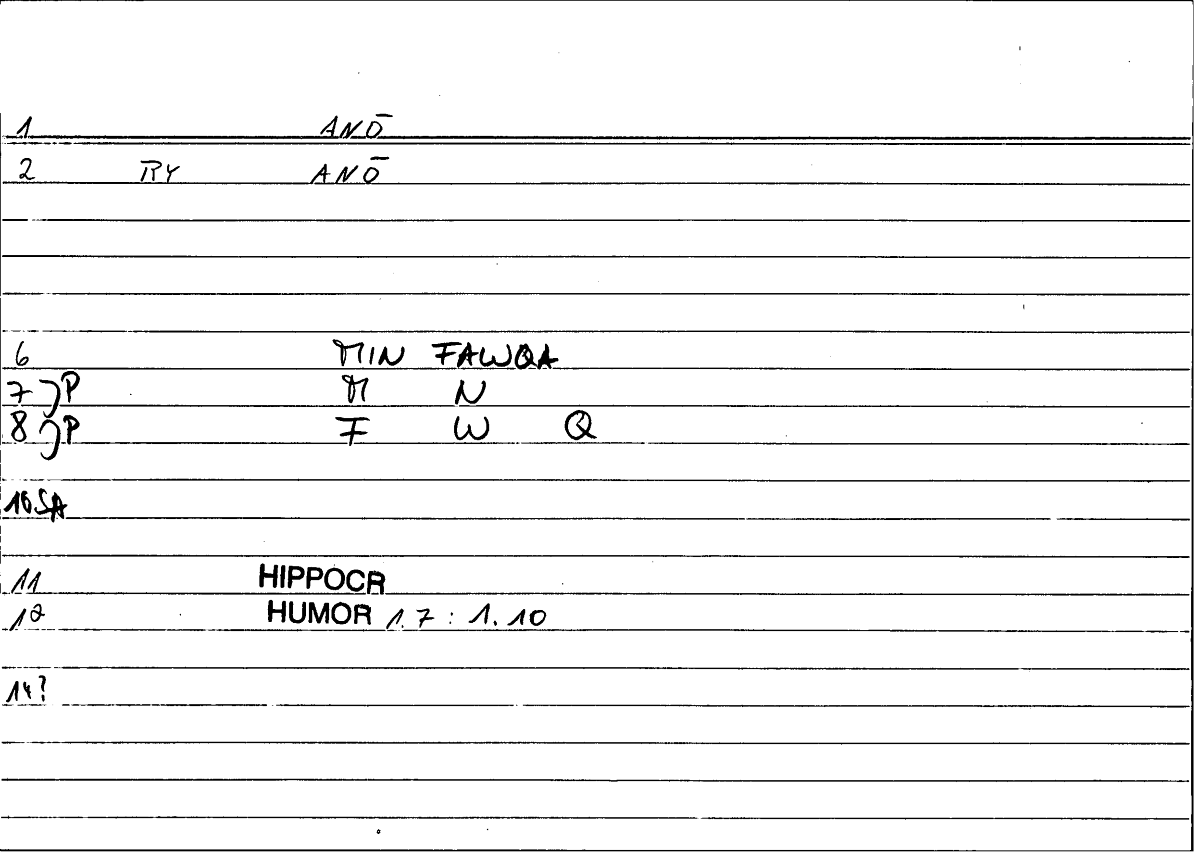 1 ANŌ
2 RY ANŌ
6 MIN FAWQA
7 JP M N
8 JP F W Q
10 SA
11 HIPPOCR
12 HUMOR 1.7 : 1.10
14?